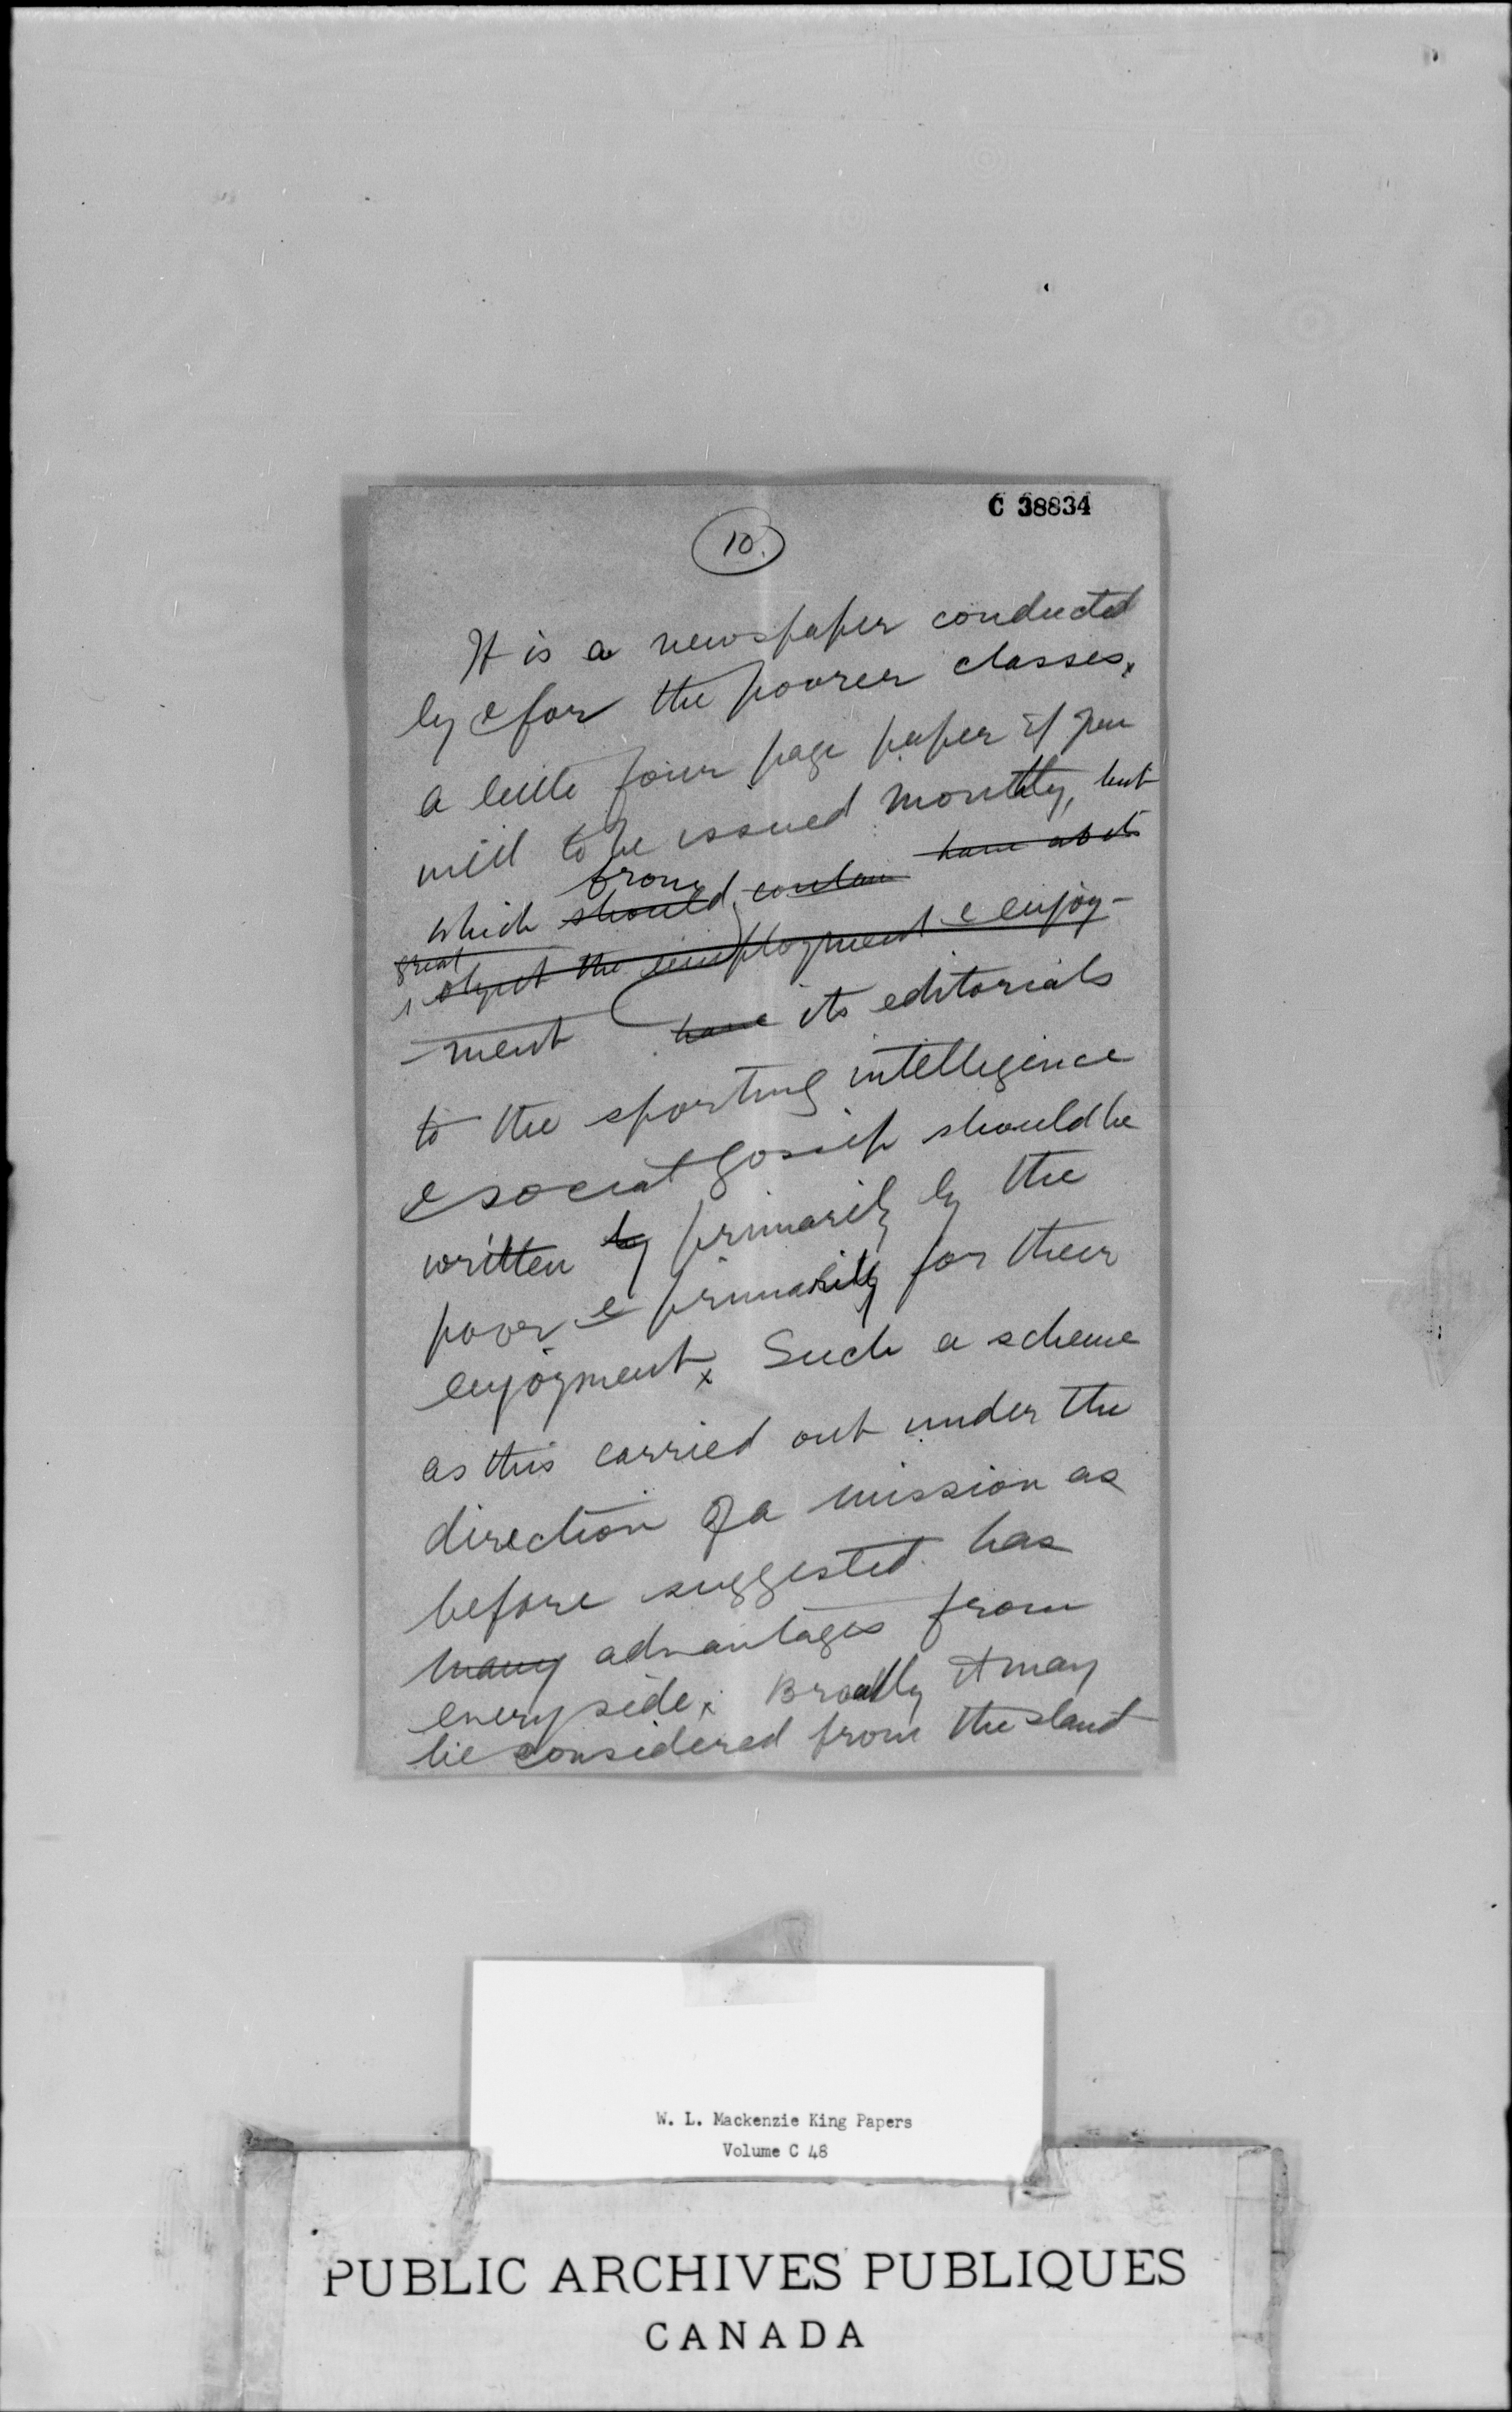 C 38834
10.
It is a newspaper conducted
by & for the poorer classes.
a little four page paper if you
will to be issued monthly, but
which from should contain have as its
great object the employment & enjoy-
ment have its editorials
to the sporting intelligence
& social gossip should be
written by primarily by the
poor & primarily for their
enjoyment. Such a scheme
as this carried out under the
direction of a mission as
before suggested has
many advantages from
every side. Broadly it may
be considered from the stand
W. L. Mackenzie King Papers
Volume C 48
PUBLIC ARCHIVES PUBLIQUES
CANADA